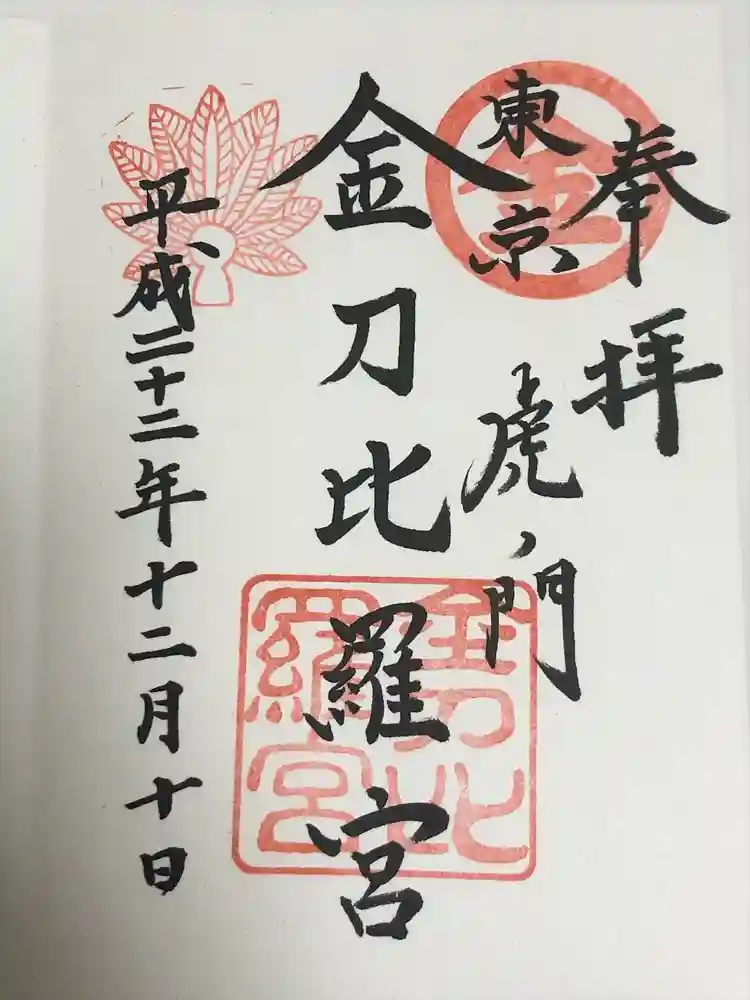 奉拝
東京
虎ノ門
金刀比羅宮
平成二十二年十二月十日
金
金刀比羅宮